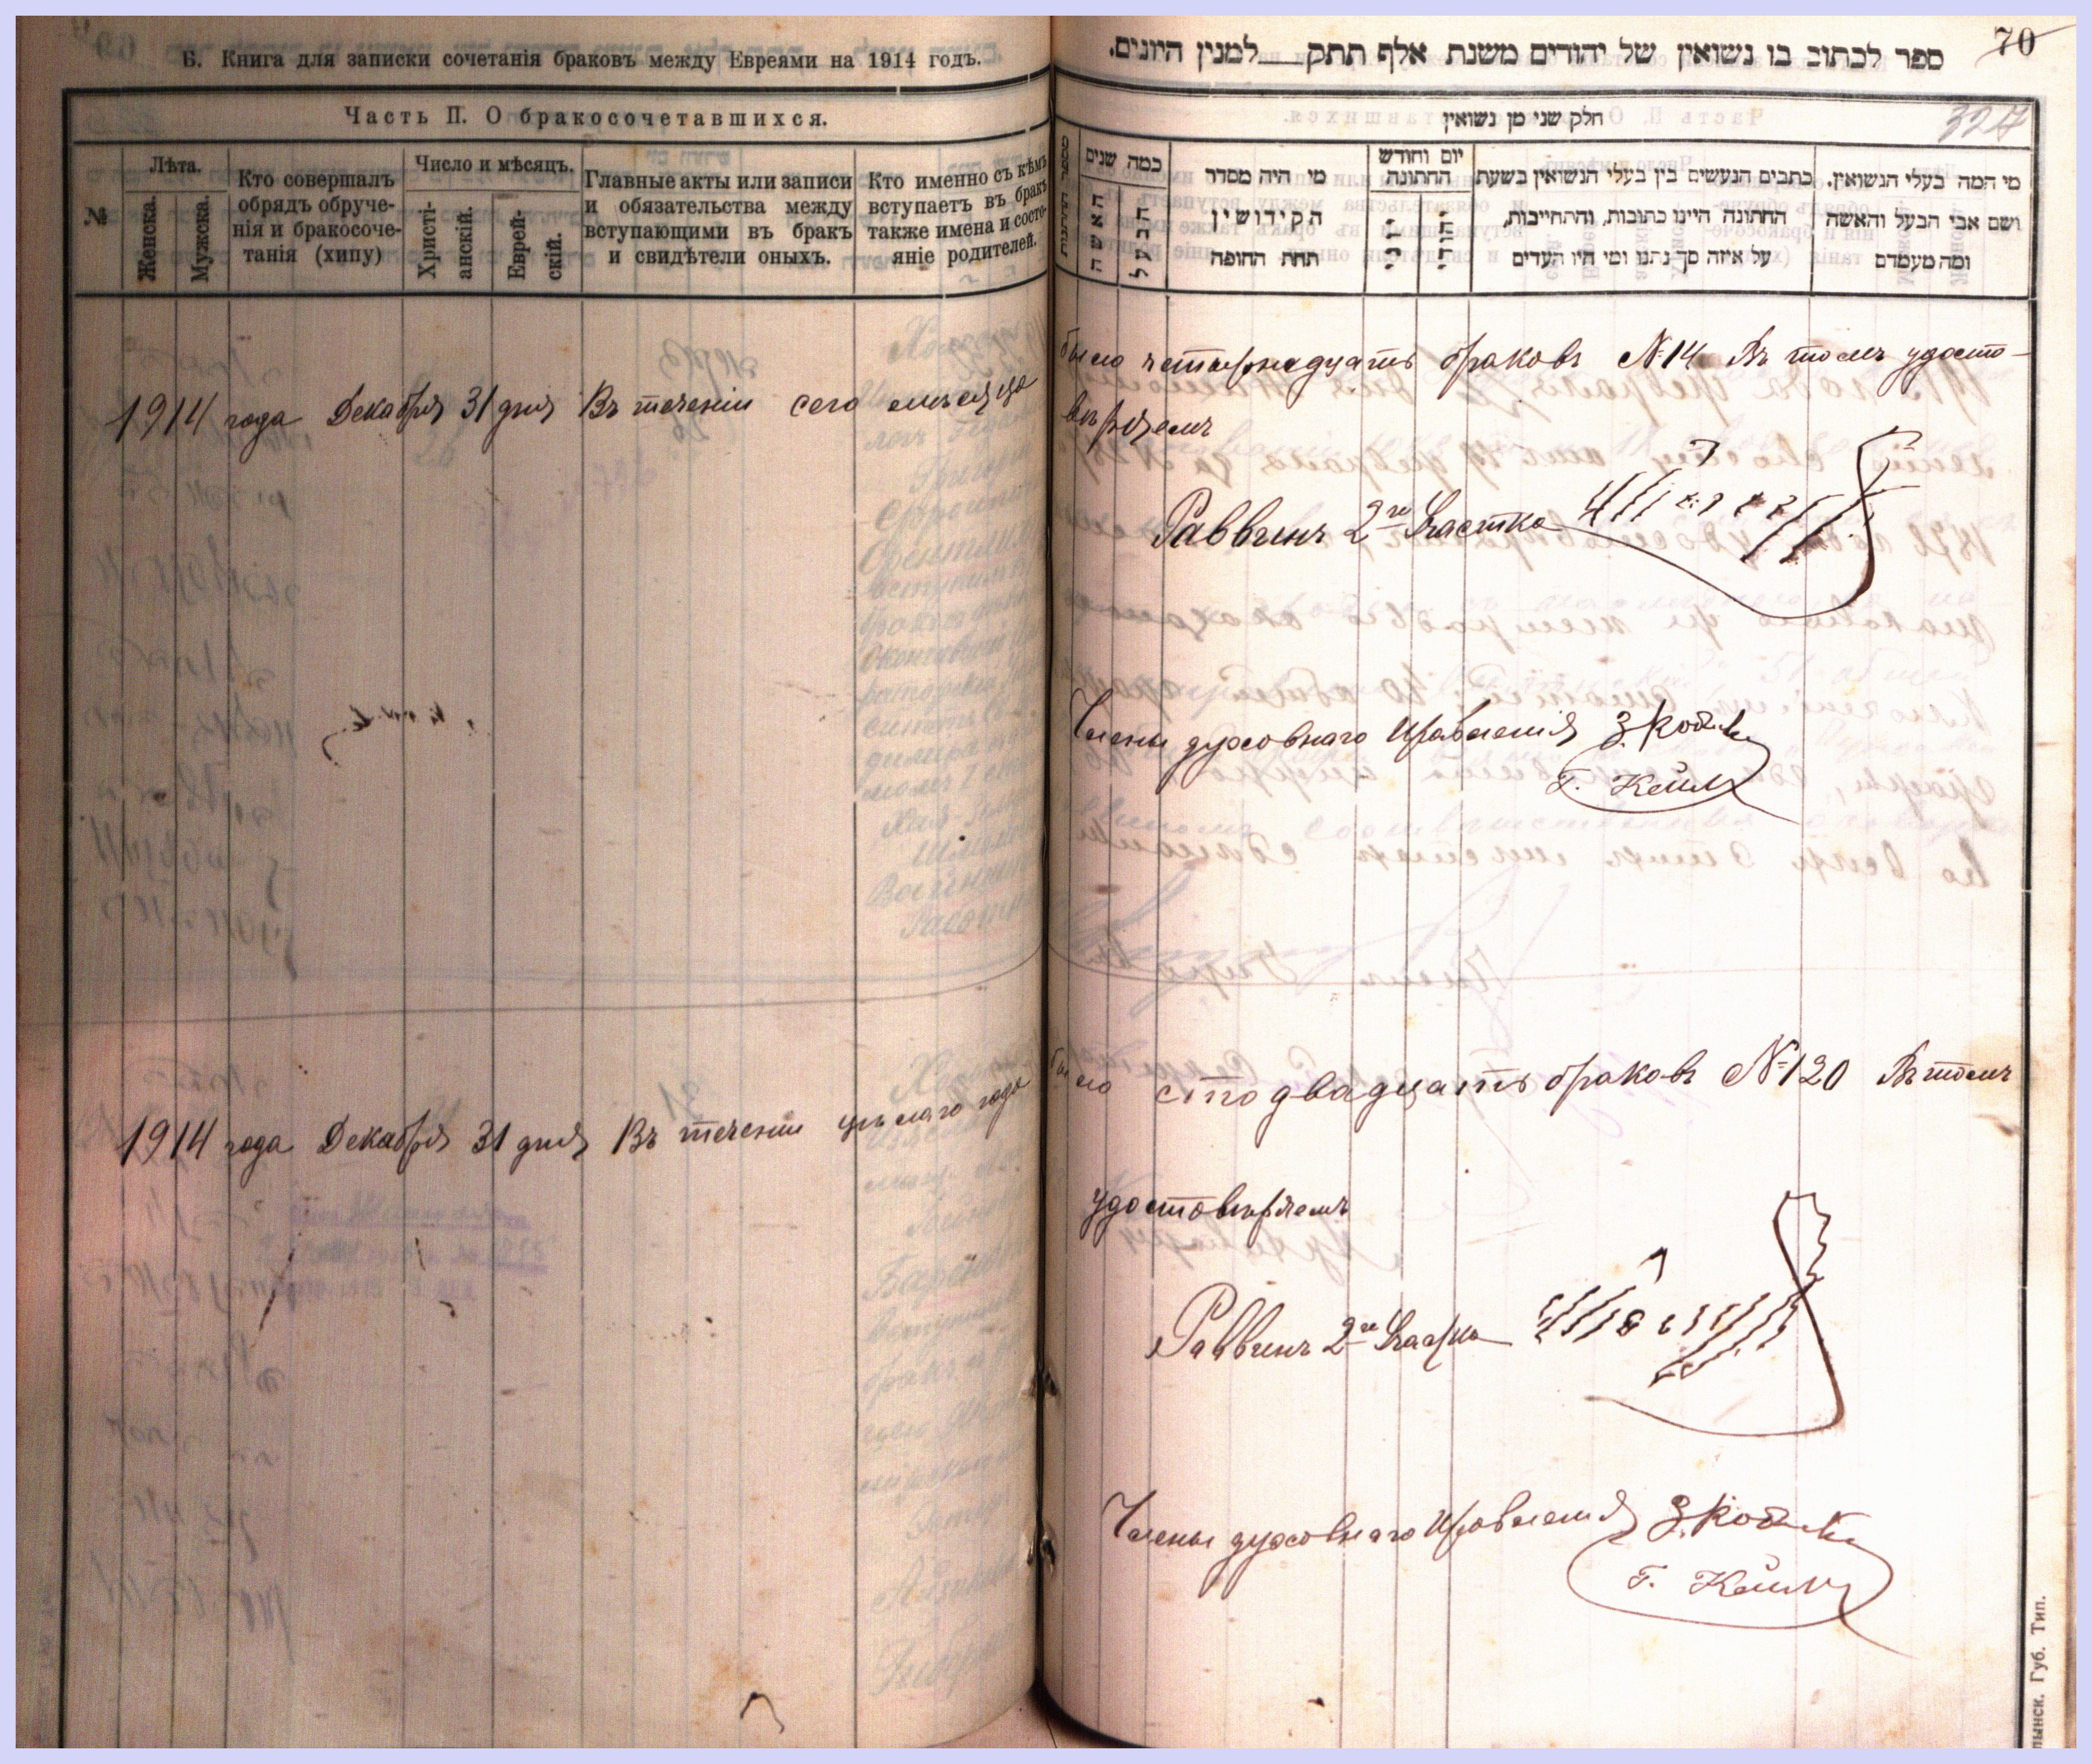 Б. Книга для записки сочетанія браковъ между Евреями на 1914 годъ.
Часть II. О бракосочетавшихся.
№
Лѣта.
Женска.
Мужска.
Кто совершалъ
обрядъ обруче-
нія и бракосоче-
танія (хипу)
Число и мѣсяцъ.
Христі-
анскій.
Еврей-
скій.
Главные акты или записи
и обязательства между
вступающими въ бракъ
и свидѣтели оныхъ.
Кто именно съ кѣмъ
вступаетъ въ бракъ
также имена и состо-
яніе родителей.
70
ספר לכתוב בו נשואין של יהודים משנת אלף תתק___למנין היונים.
324
חלק שני מן נשואין
מספר החתונות
כמה שנים
האשה
הבעל
מי היה מסדר
הקידושין
תחת החופה
יום וחודש
החתונה
יוני
יהודי
כתבים הנעשים בין בעלי הנשואין בשעת
החתונה היינו כתובות, והתחייבות,
על איזה סך נתנו ומי היו העדים
מי המה בעלי הנשואין,
ושם אבי הבעל והאשה
ומה מעמדם
1914 года Декабря 31 дня Въ теченіи сего мѣсяца было четырнадцать браковъ №14 Въ томъ удосто-
вѣряемъ
Раввинъ 2го Участка
Члены духовнаго Правленія
1914 года Декабря 31 дня Въ теченіи цѣлаго года было сто двадцать браковъ №120 Въ томъ
удостовѣряемъ
Раввинъ 2го Участка
Члены духовнаго Правленія
Губ. Тип.